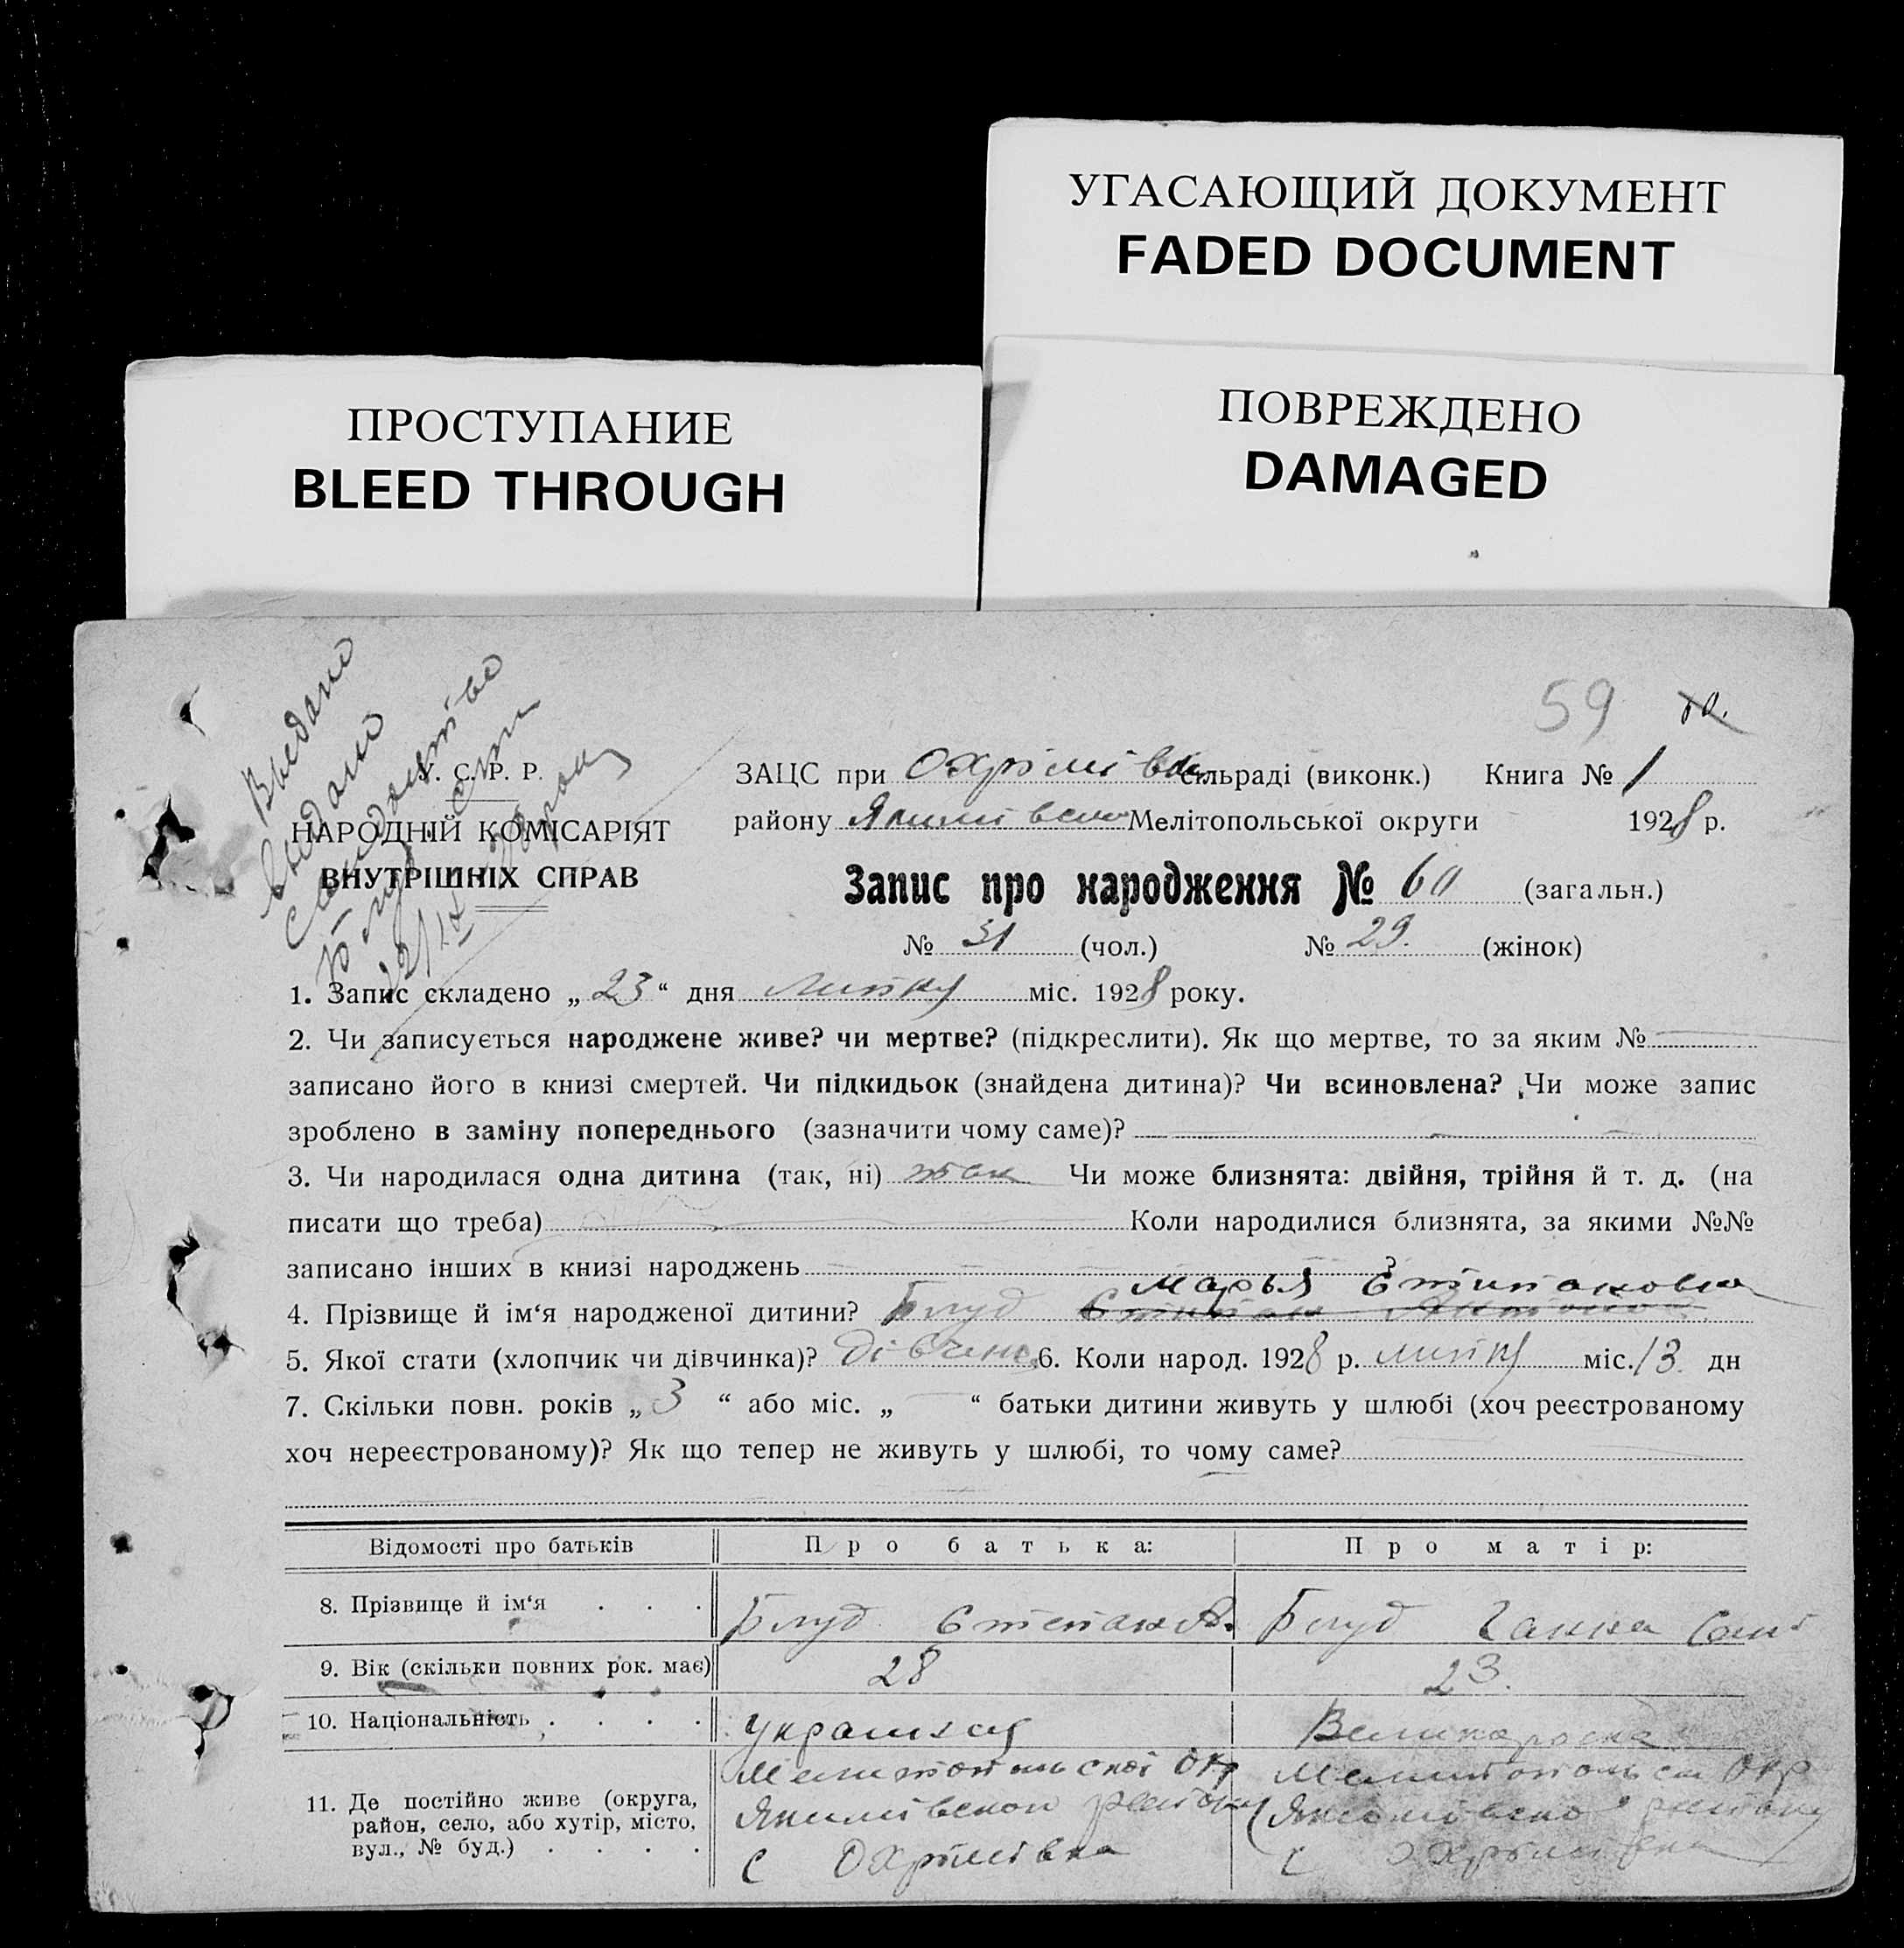 УГАСАЮЩИЙ ДОКУМЕНТ
FADED DOCUMENT
ПРОСТУПАНИЕ
BLEED THROUGH
ПОВРЕЖДЕНО
DAMAGED
59 60.
Выедано
Выдано
У. С. Р. Р.
НАРОДНІЙ КОМІСАРІЯТ
ВНУТРІШНІХ СПРАВ
ЗАЦС при Охрімівськ сільраді (виконк.) Книга № 1
району Якимівсько Мелітопольської округи 1928 р.
Запис про народження № 60 (загальн.)
№ 31 (чол.) № 29. (жінок)
1. Запис складено „ 23 “ дня липку міс. 1928 року.
2. Чи записується народжене живе? чи мертве? (підкреслити). Як що мертве, то за яким №
записано його в книзі смертей. Чи підкидьок (знайдена дитина)? Чи всиновлена? Чи може запис
зроблено в заміну попереднього (зазначити чому саме)?
3. Чи народилася одна дитина (так, ні) так Чи може близнята: двійня, трійня й т. д. (на
писати що треба) Коли народилися близнята, за якими №№
записано інших в книзі народжень ?
Марья Стипановна
4. Прізвище й ім‘я народженої дитини? Блуд Стипан
5. Якої стати (хлопчик чи дівчинка)? дівчинс 6. Коли народ. 1928 р. липку міс. 13 дн
7. Скільки повн. років „ 3 “ або міс. „ “ батьки дитини живуть у шлюбі (хоч реєстрованому
хоч нереєстрованому)? Як що тепер не живуть у шлюбі, то чому саме?
Відомості про батьків Про батька: Про матір:
8. Прізвище й ім‘я . . . Блуд Степан А. Блуд Ганна
9. Вік (скільки повних рок. має) 28 23.
10. Національність . . . . Великороска
11. Де постійно живе (округа, район, село, або хутір, місто, вул., № буд.) . . . .
Мелитопольскої Окр Мелитопольск Окр
Якимівскои району Якимівско району
с Охрімівка с Охрімівка